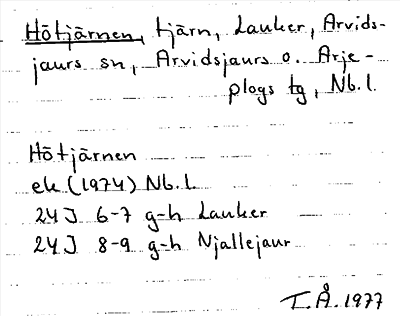 Hötjärnen, tjärn, Lauker, Arvids-
jaurs sn, Arvidsjaurs o. Arje-
plogs tg, Nb.l.
Hötjärnen
ek (1974) Nb.l.
24J 6-7 g-h Lauker
24J 8-9 g-h Njallejaur
T.Å. 1977